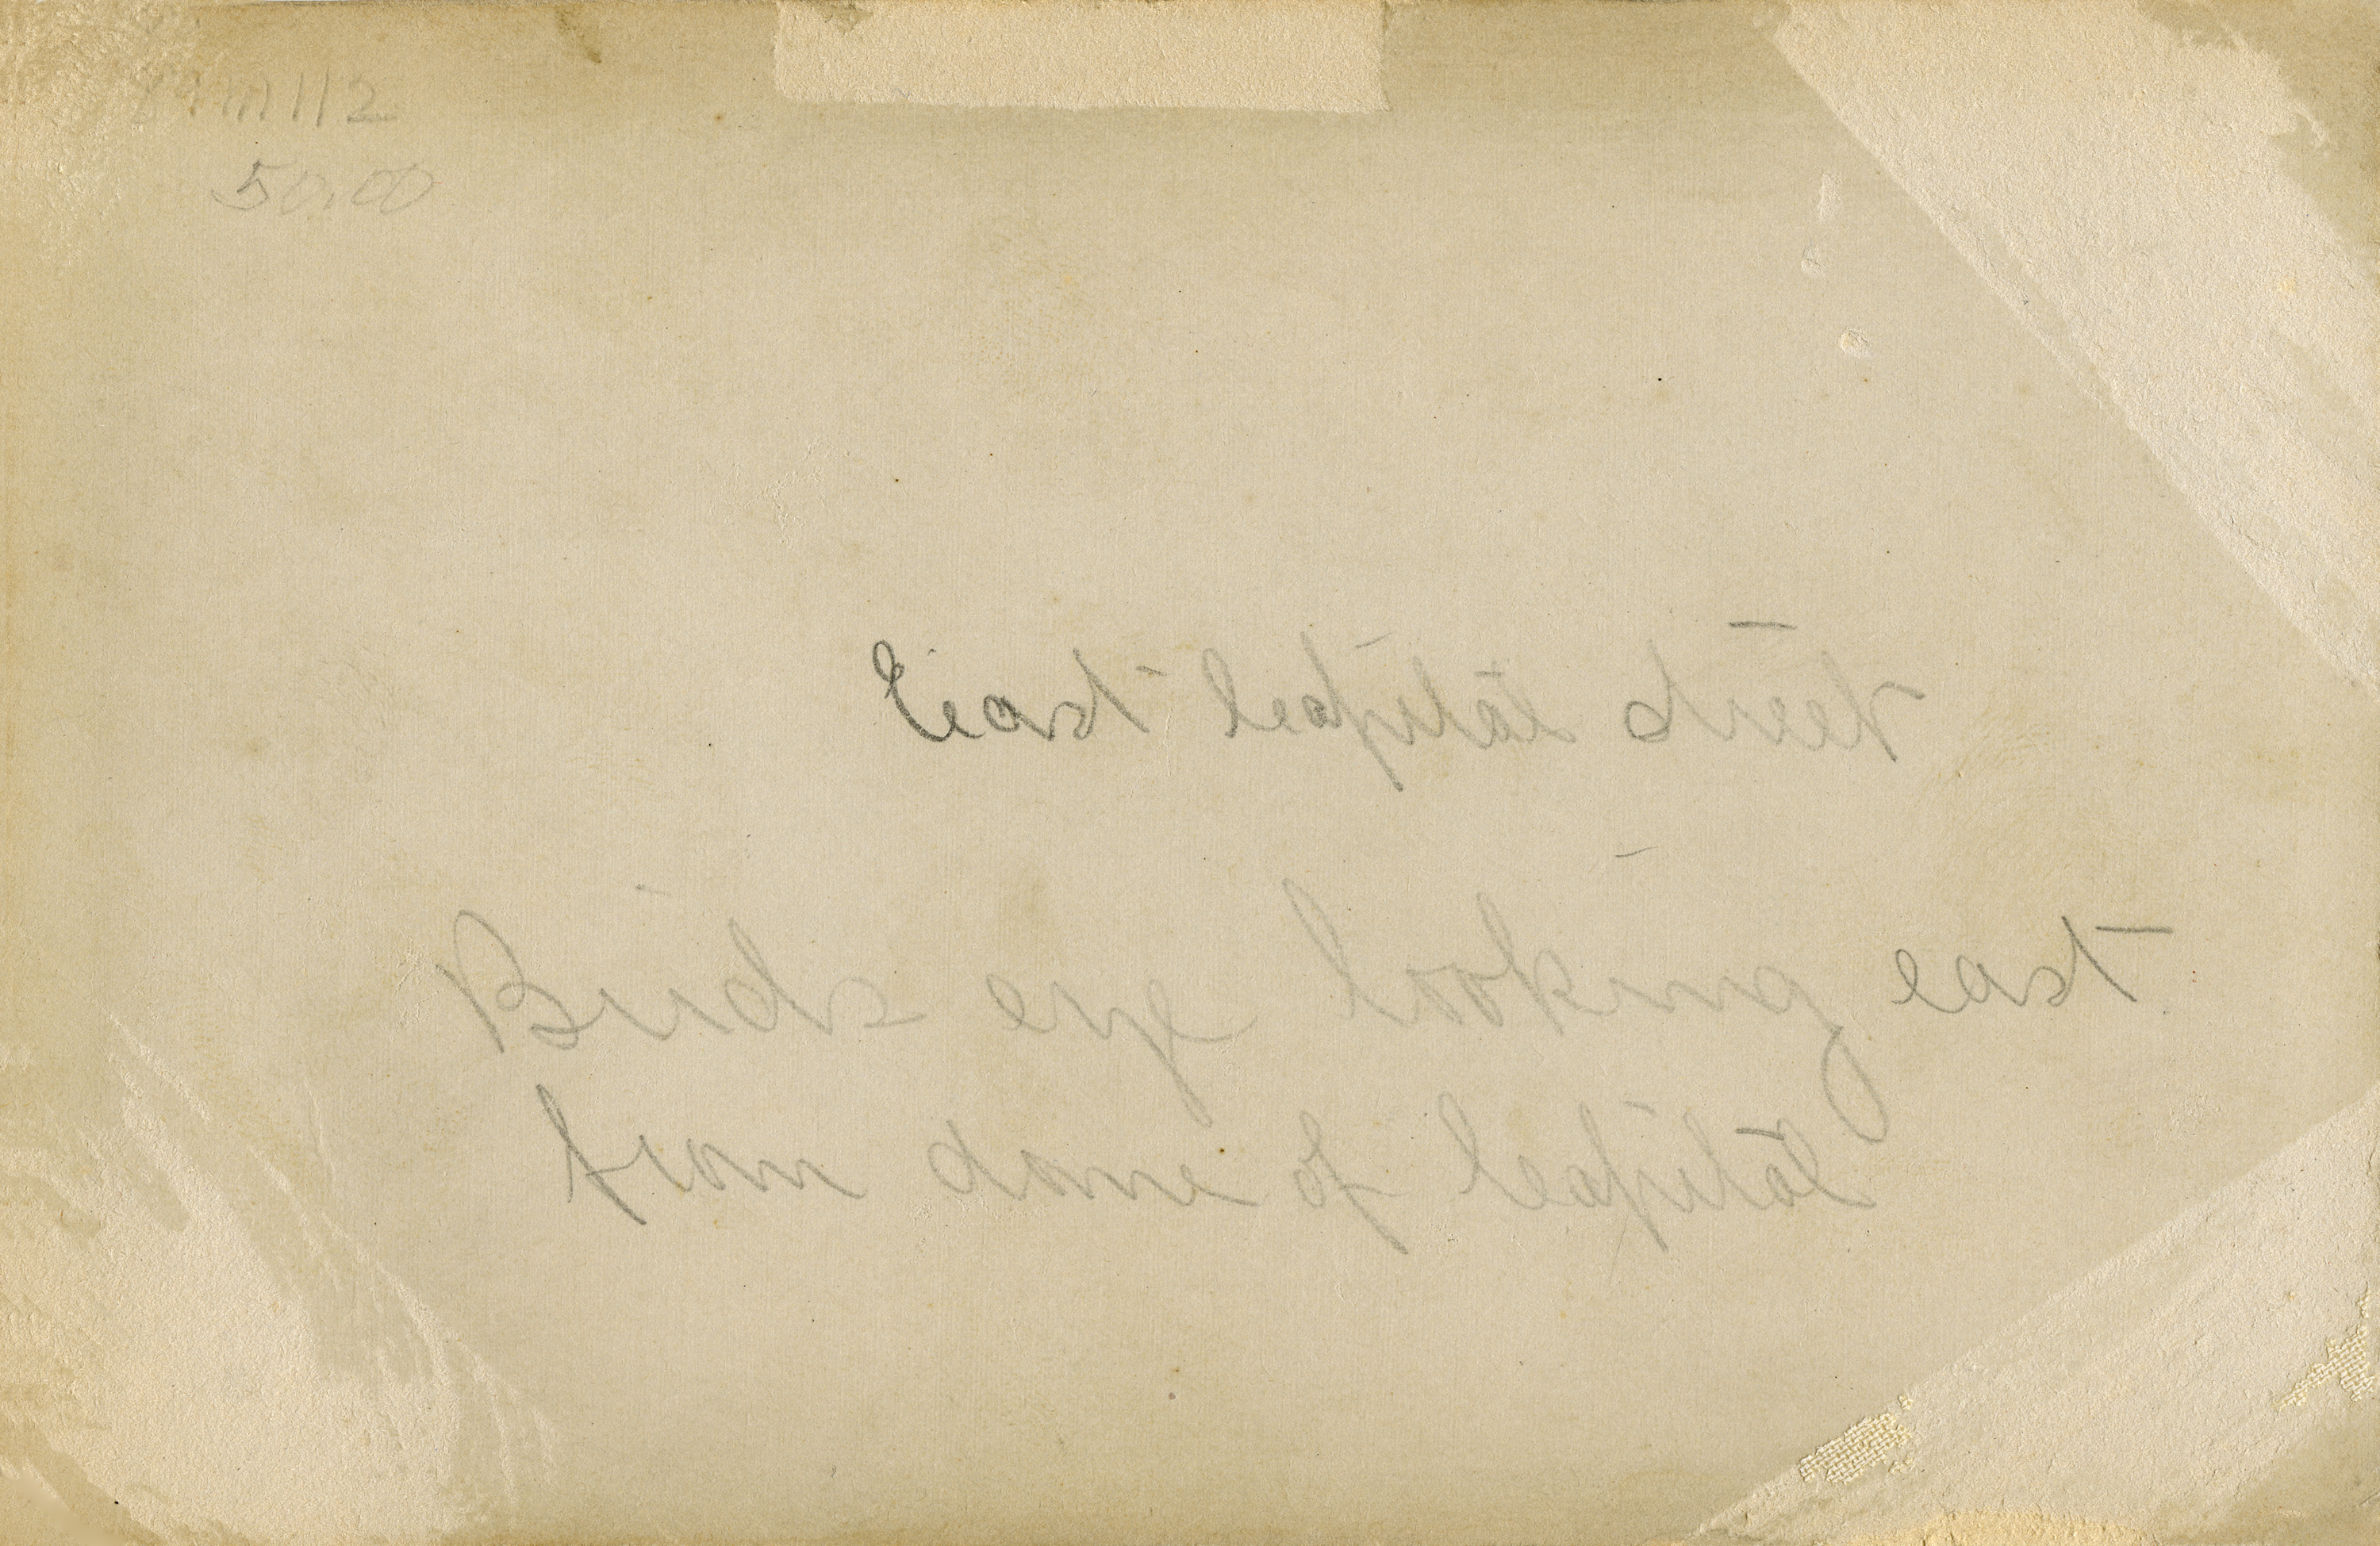 50.00
East Capital street
Birds eye looking east
from dome of Capital